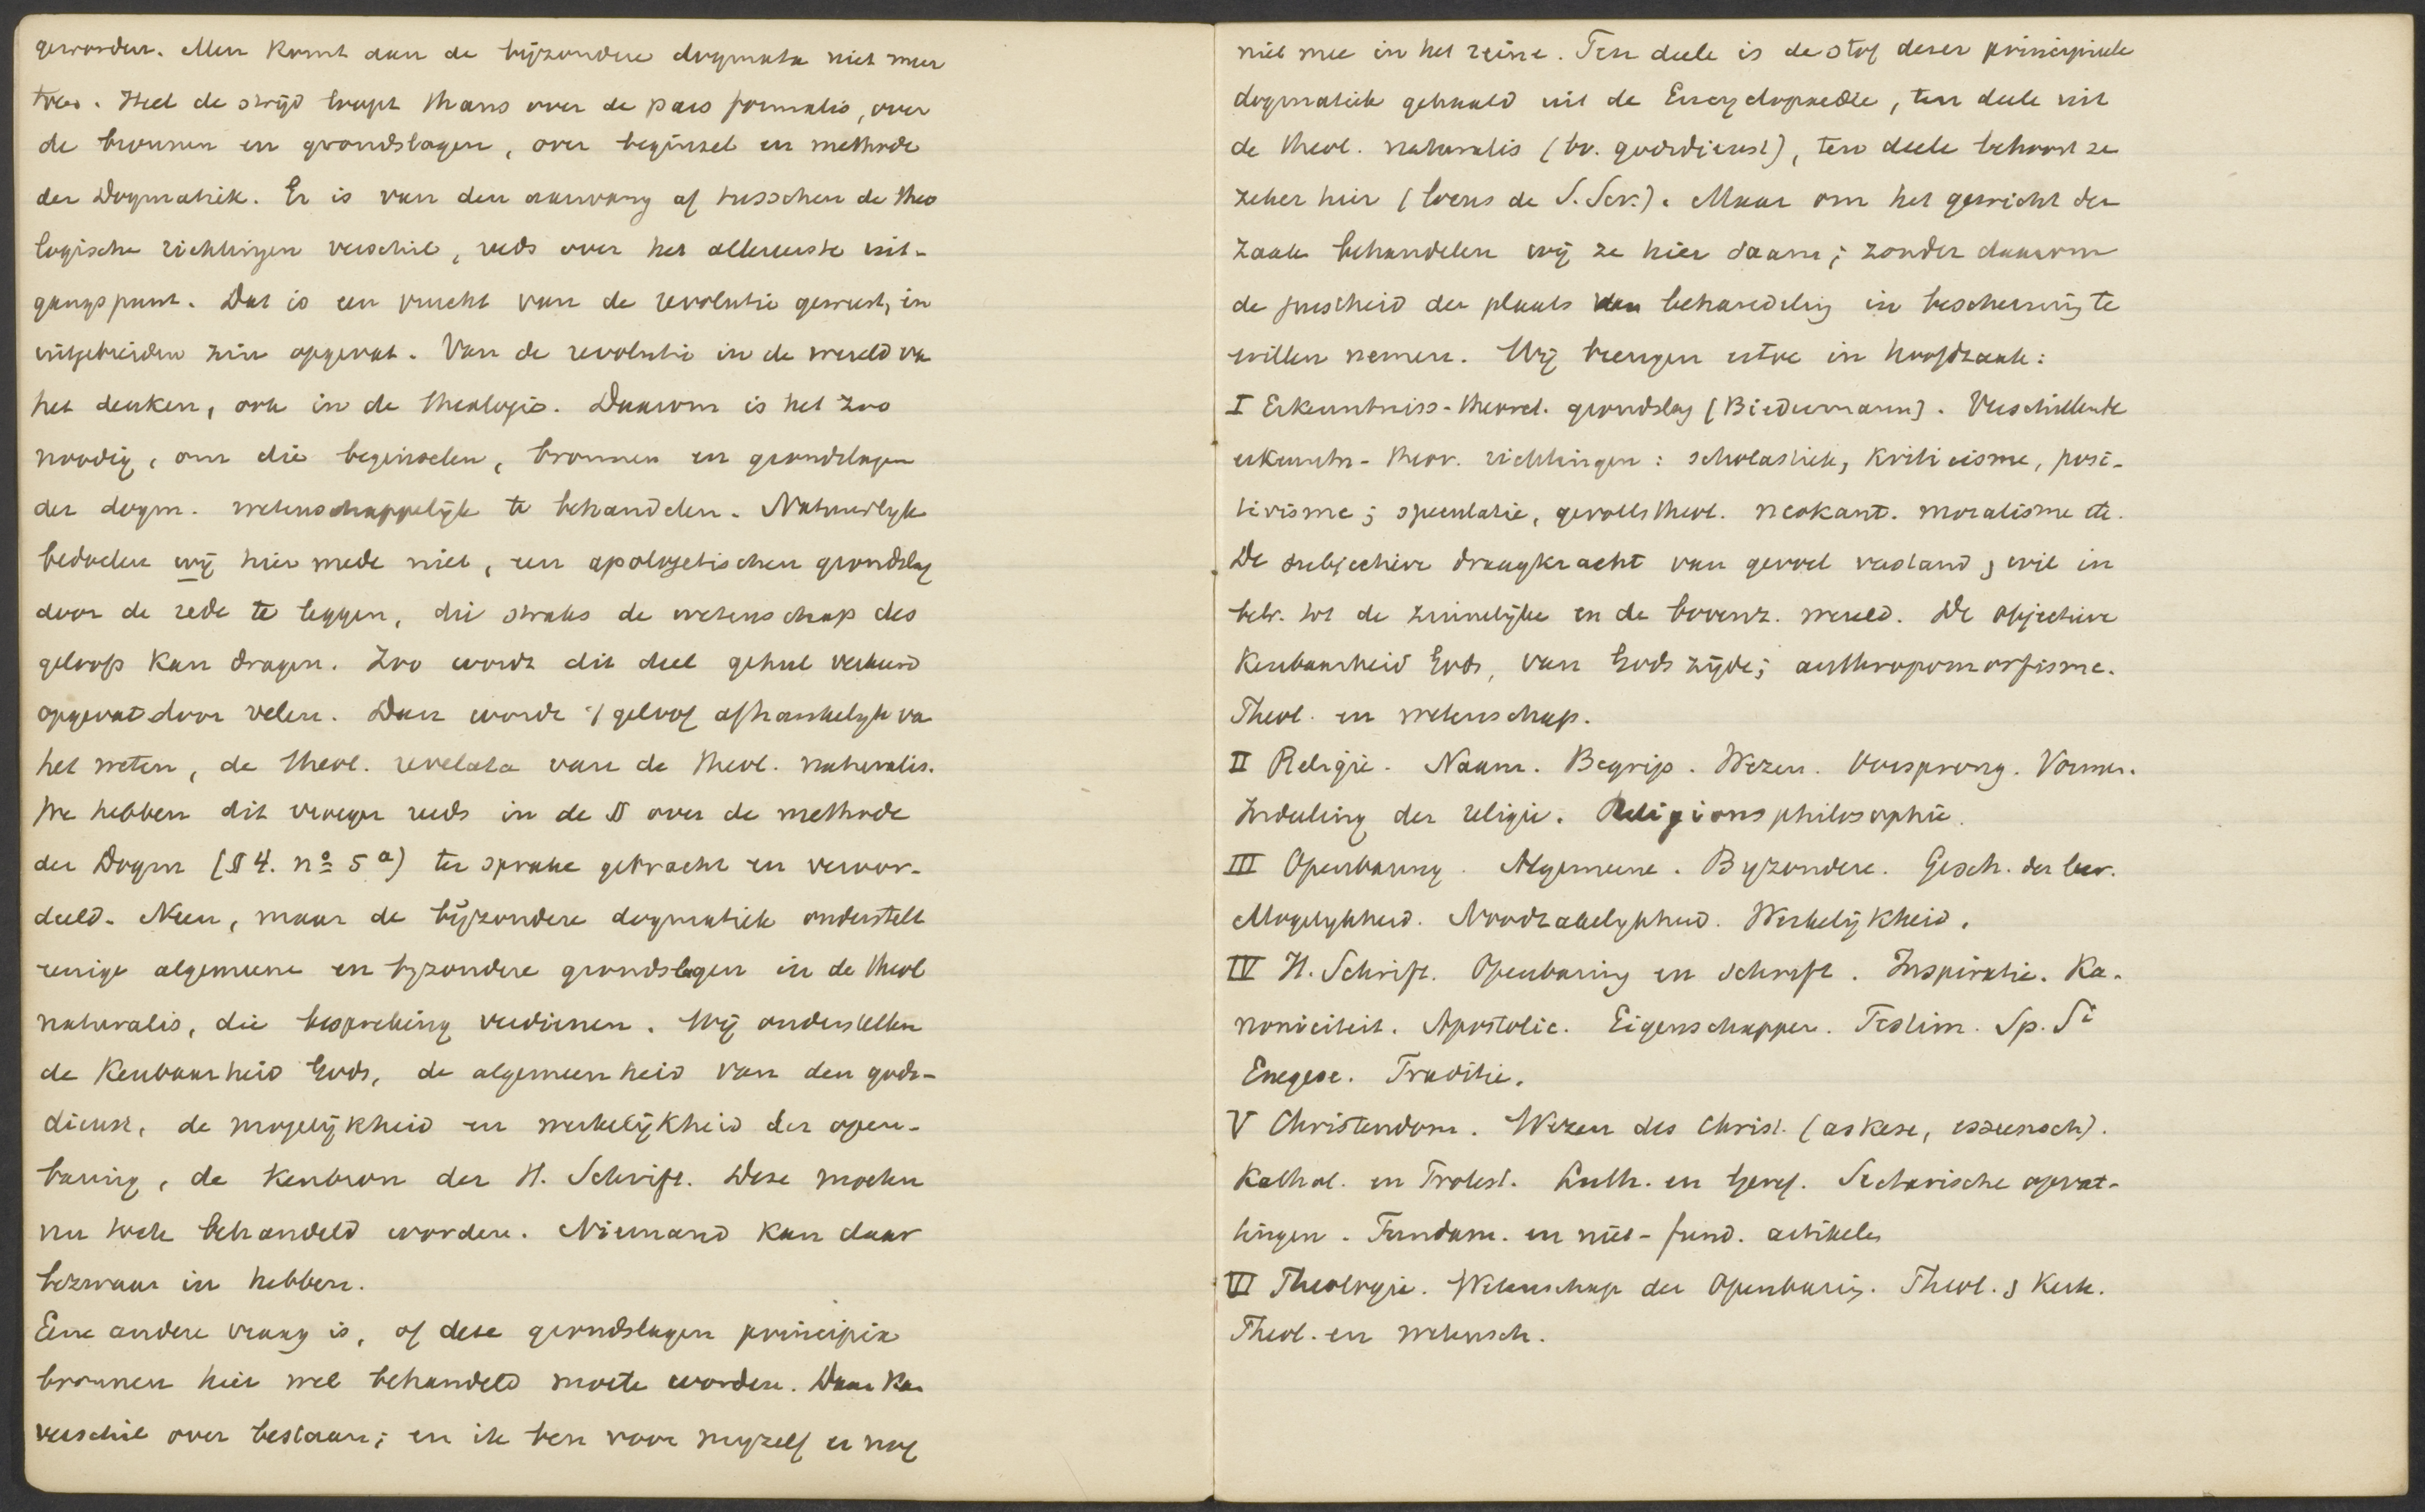 geworden. Men komt dan de bijzondere dogmata niet meer
toe. Heel de strijd loopt thans over de pars formalis, over
de bronnen en grondslagen, over beginsel en methode
der Dogmatiek. Er is van den aanvang af tusschen de theo
logische richtingen verschil, reeds over het allereerste uit-
gangspunt. Dat is een vrucht van de revolutie geweest, in
uitgebreiden zin opgevat. Van de revolutie in de wereld va
het denken, ook in de theologie. Daarom is het zoo
noodig, om die beginselen, bronnen en grondslagen
der dogm. wetenschappelijk te behandelen. Natuurlyk
bedoelen wij hier mede niet, een apologetischen grondslag
door de rede te leggen, die straks de wetenschap des
geloofs kan dragen. Zoo wordt dit deel geheel verkeerd
opgevat door velen. Dan worde 't geloof afhankelyk va
het weten, de theol. revelata van de theol. naturalis.
We hebben dit vroeger reeds in de § over de methode
der Dogm (§ 4. no 5 a) ter sprake gebracht en veroor-
deeld. Neen, maar de bijzondere dogmatiek onderstelt
eenige algemeene en byzondere grondslagen in de theol
naturalis, die bespreking verdienen. Wij onderstellen
de kenbaarheid Gods, de algemeenheid van den gods-
dienst, de mogelijkheid en werkelijkheid der open-
baring, de kenbron der H. Schrift. Deze moeten
nu toch behandeld worden. Niemand kan daar
bezwaar in hebben.
Eene andere vraag is, of deze grondslagen principia
bronnen hier wel behandeld moete worden. Daar kan
verschil over bestaan; en ik ben voor myzelf er nog
niet mee in het reine. Ten deele is de stof dezer principieele
dogmatiek gehaald uit de Encyclopaedie, ten deele uit
de theol. naturalis (bv. godsdienst), ten deele behoort ze
zeker hier (locus de S. Scr.). Maar om het gewicht der
zaak behandelen wij ze hier saam; zonder daarom
de juistheid der plaats van behandeling in bescherming te
willen nemen. Wij brengen ertoe in hoofdzaak:
I Erkenntniss-theoret. grondslag (Biedermann). Verschillende
erkenntn-theor. richtingen: scholastiek, kriticisme, posi-
tivisme; speculatie, gevoelstheol. neokant. moralisme etc.
De subjectieve draagkracht van gevoel verstand, wil in
betr. tot de zinnelijke en de bovenz. wereld. De objectieve
kenbaarheid Gods, van Gods zijde; anthropomorfisme.
Theol. en wetenschap.
II Religie. Naam. Begrip. Wezen. Oorsprong. Vormen.
Indeeling der religie. Religionsphilosophie.
III Openbaring. Algemeene. Byzondere. Gesch. der leer.
Mogelykheid. Noodzakelykheid. Werkelijkheid.
IV H. Schrift. Openbaring en schrift. Inspiratie. Ka-
noniciteit. Apostolic. Eigenschappen. Testim. Sp. Si
Exegese. Traditie.
V Christendom. Wezen des Christ. (askese,
Kathol. en Protest. Luth. en Geref. Sectarische opvat-
tingen. Fundam. en niet-fund. artikelen
VI Theologie. Wetenschap der Openbaring. Theol. & Kerk.
Theol. en wetensch.